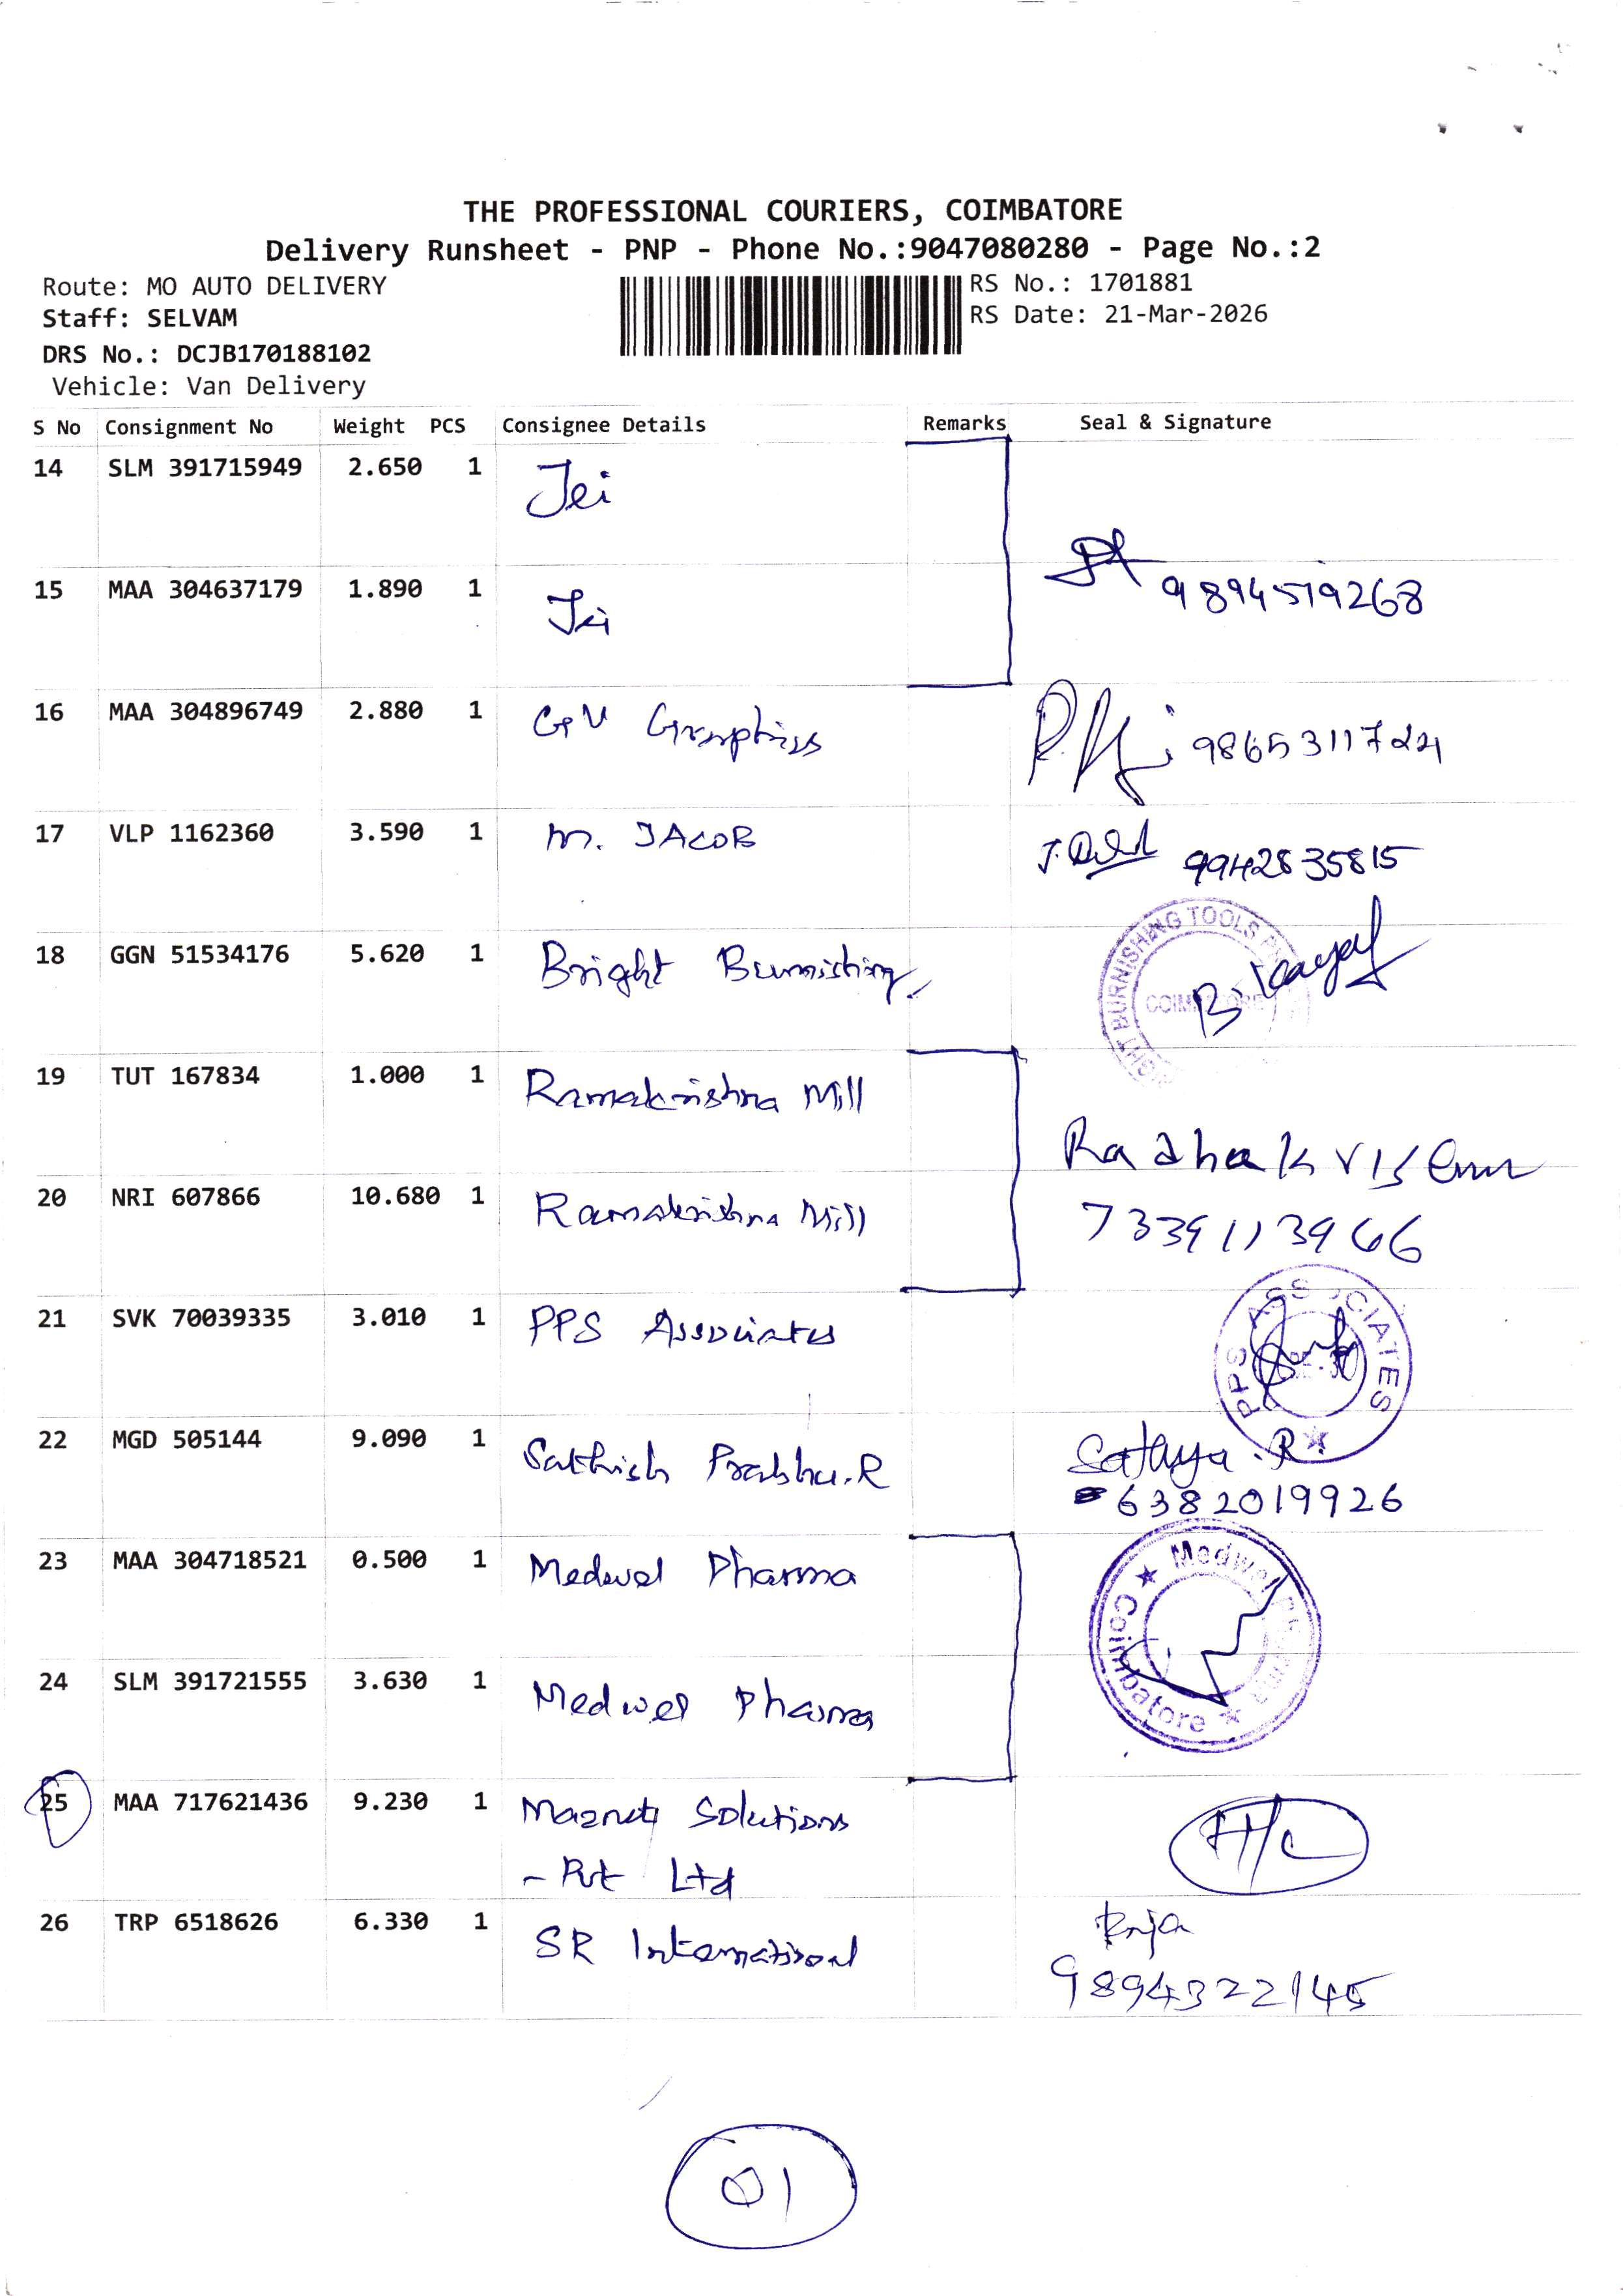 THE PROFESSIONAL COURIERS, COIMBATORE
Delivery Runsheet - PNP - Phone No.:9047080280 - Page No.:2
Route: MO AUTO DELIVERY
RS No.: 1701881
Staff: SELVAM
RS Date: 21-Mar-2026
DRS No.: DCJB170188102
Vehicle: Van Delivery
S No Consignment No Weight PCS Consignee Details Remarks Seal & Signature
14 SLM 391715949 2.650 1 Jei
15 MAA 304637179 1.890 1 Jei 9894519268
16 MAA 304896749 2.880 1 GV Graphics 9865311724
17 VLP 1162360 3.590 1 M. JACOB 9942835815
18 GGN 51534176 5.620 1 Bright Burnishing
BURNISHING TOOLS
19 TUT 167834 1.000 1 Ramakrishna Mill
Radhakrishnan
20 NRI 607866 10.680 1 Ramakrishna Mill 7339113966
21 SVK 70039335 3.010 1 PPS Associates
PPS ASSOCIATES
22 MGD 505144 9.090 1 Sathish Prabhu.R Sathya.R
6382019926
23 MAA 304718521 0.500 1 Medwel Pharma
Medwel Pharma
Coimbatore
24 SLM 391721555 3.630 1 Medwel Pharma
25 MAA 717621436 9.230 1 Magnetz Solutions
- Pvt Ltd
H/C
26 TRP 6518626 6.330 1 SR International Raja
9894322145
01